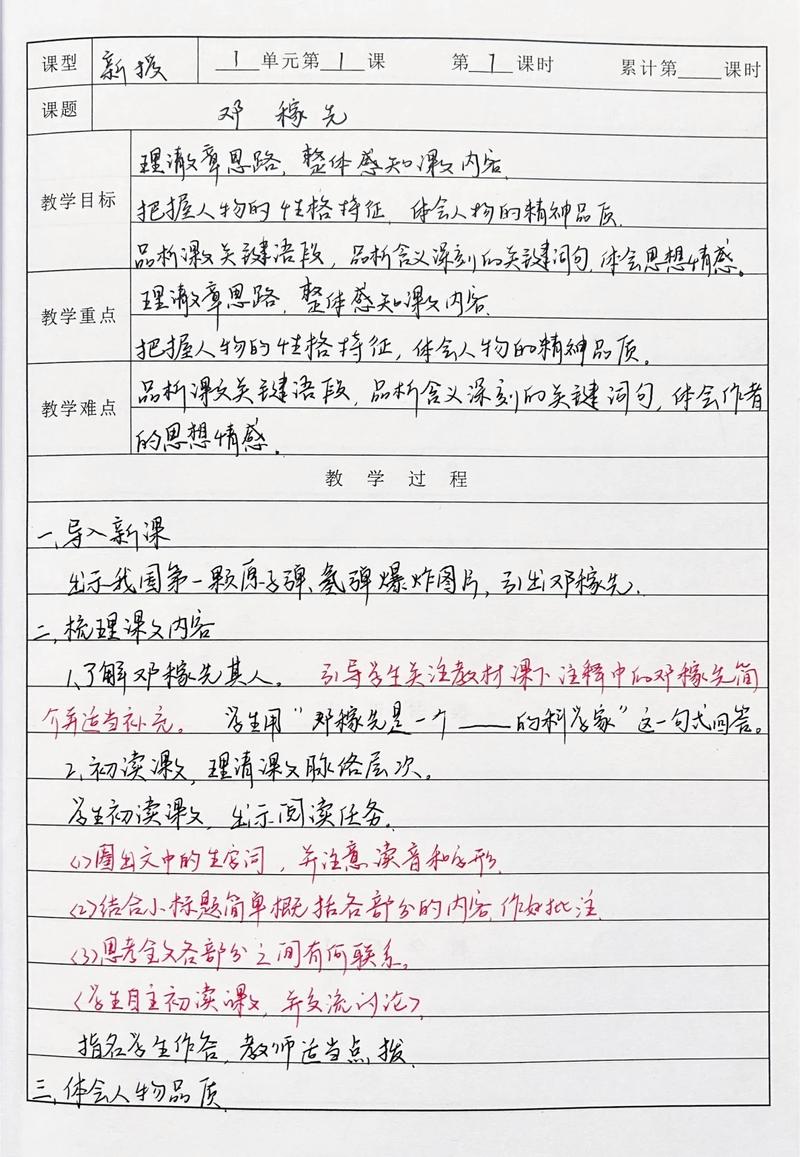 课型 新授 1 单元第 1 课 第 1 课时 累计第 课时
课题 邓稼先
教学目标 理清文章思路,整体感知课文内容.
把握人物的性格特征,体会人物的精神品质.
品析课文关键语段,品析含义深刻的关键词句,体会思想情感。
教学重点 理清文章思路,整体感知课文内容.
把握人物的性格特征,体会人物的精神品质。
教学难点 品析课文关键语段,品析含义深刻的关键词句,体会作者
的思想情感。
教学过程
一、导入新课
出示我国第一颗原子弹、氢弹爆炸图片,引出邓稼先.
二、梳理课文内容
1.了解邓稼先其人。 引导学生关注教材课下注释中的邓稼先简
介并适当补充。 学生用“邓稼先是一个____的科学家”这一句式回答。
2.初读课文,理清课文脉络层次。
学生初读课文,出示阅读任务.
(1)圈出文中的生字词,并注意读音和字形.
(2)结合小标题简单概括各部分的内容,作好批注.
(3)思考全文各部分之间有何联系。
(学生自主初读课文,并交流讨论).
指名学生作答,教师适当点拨.
三、体会人物品质.